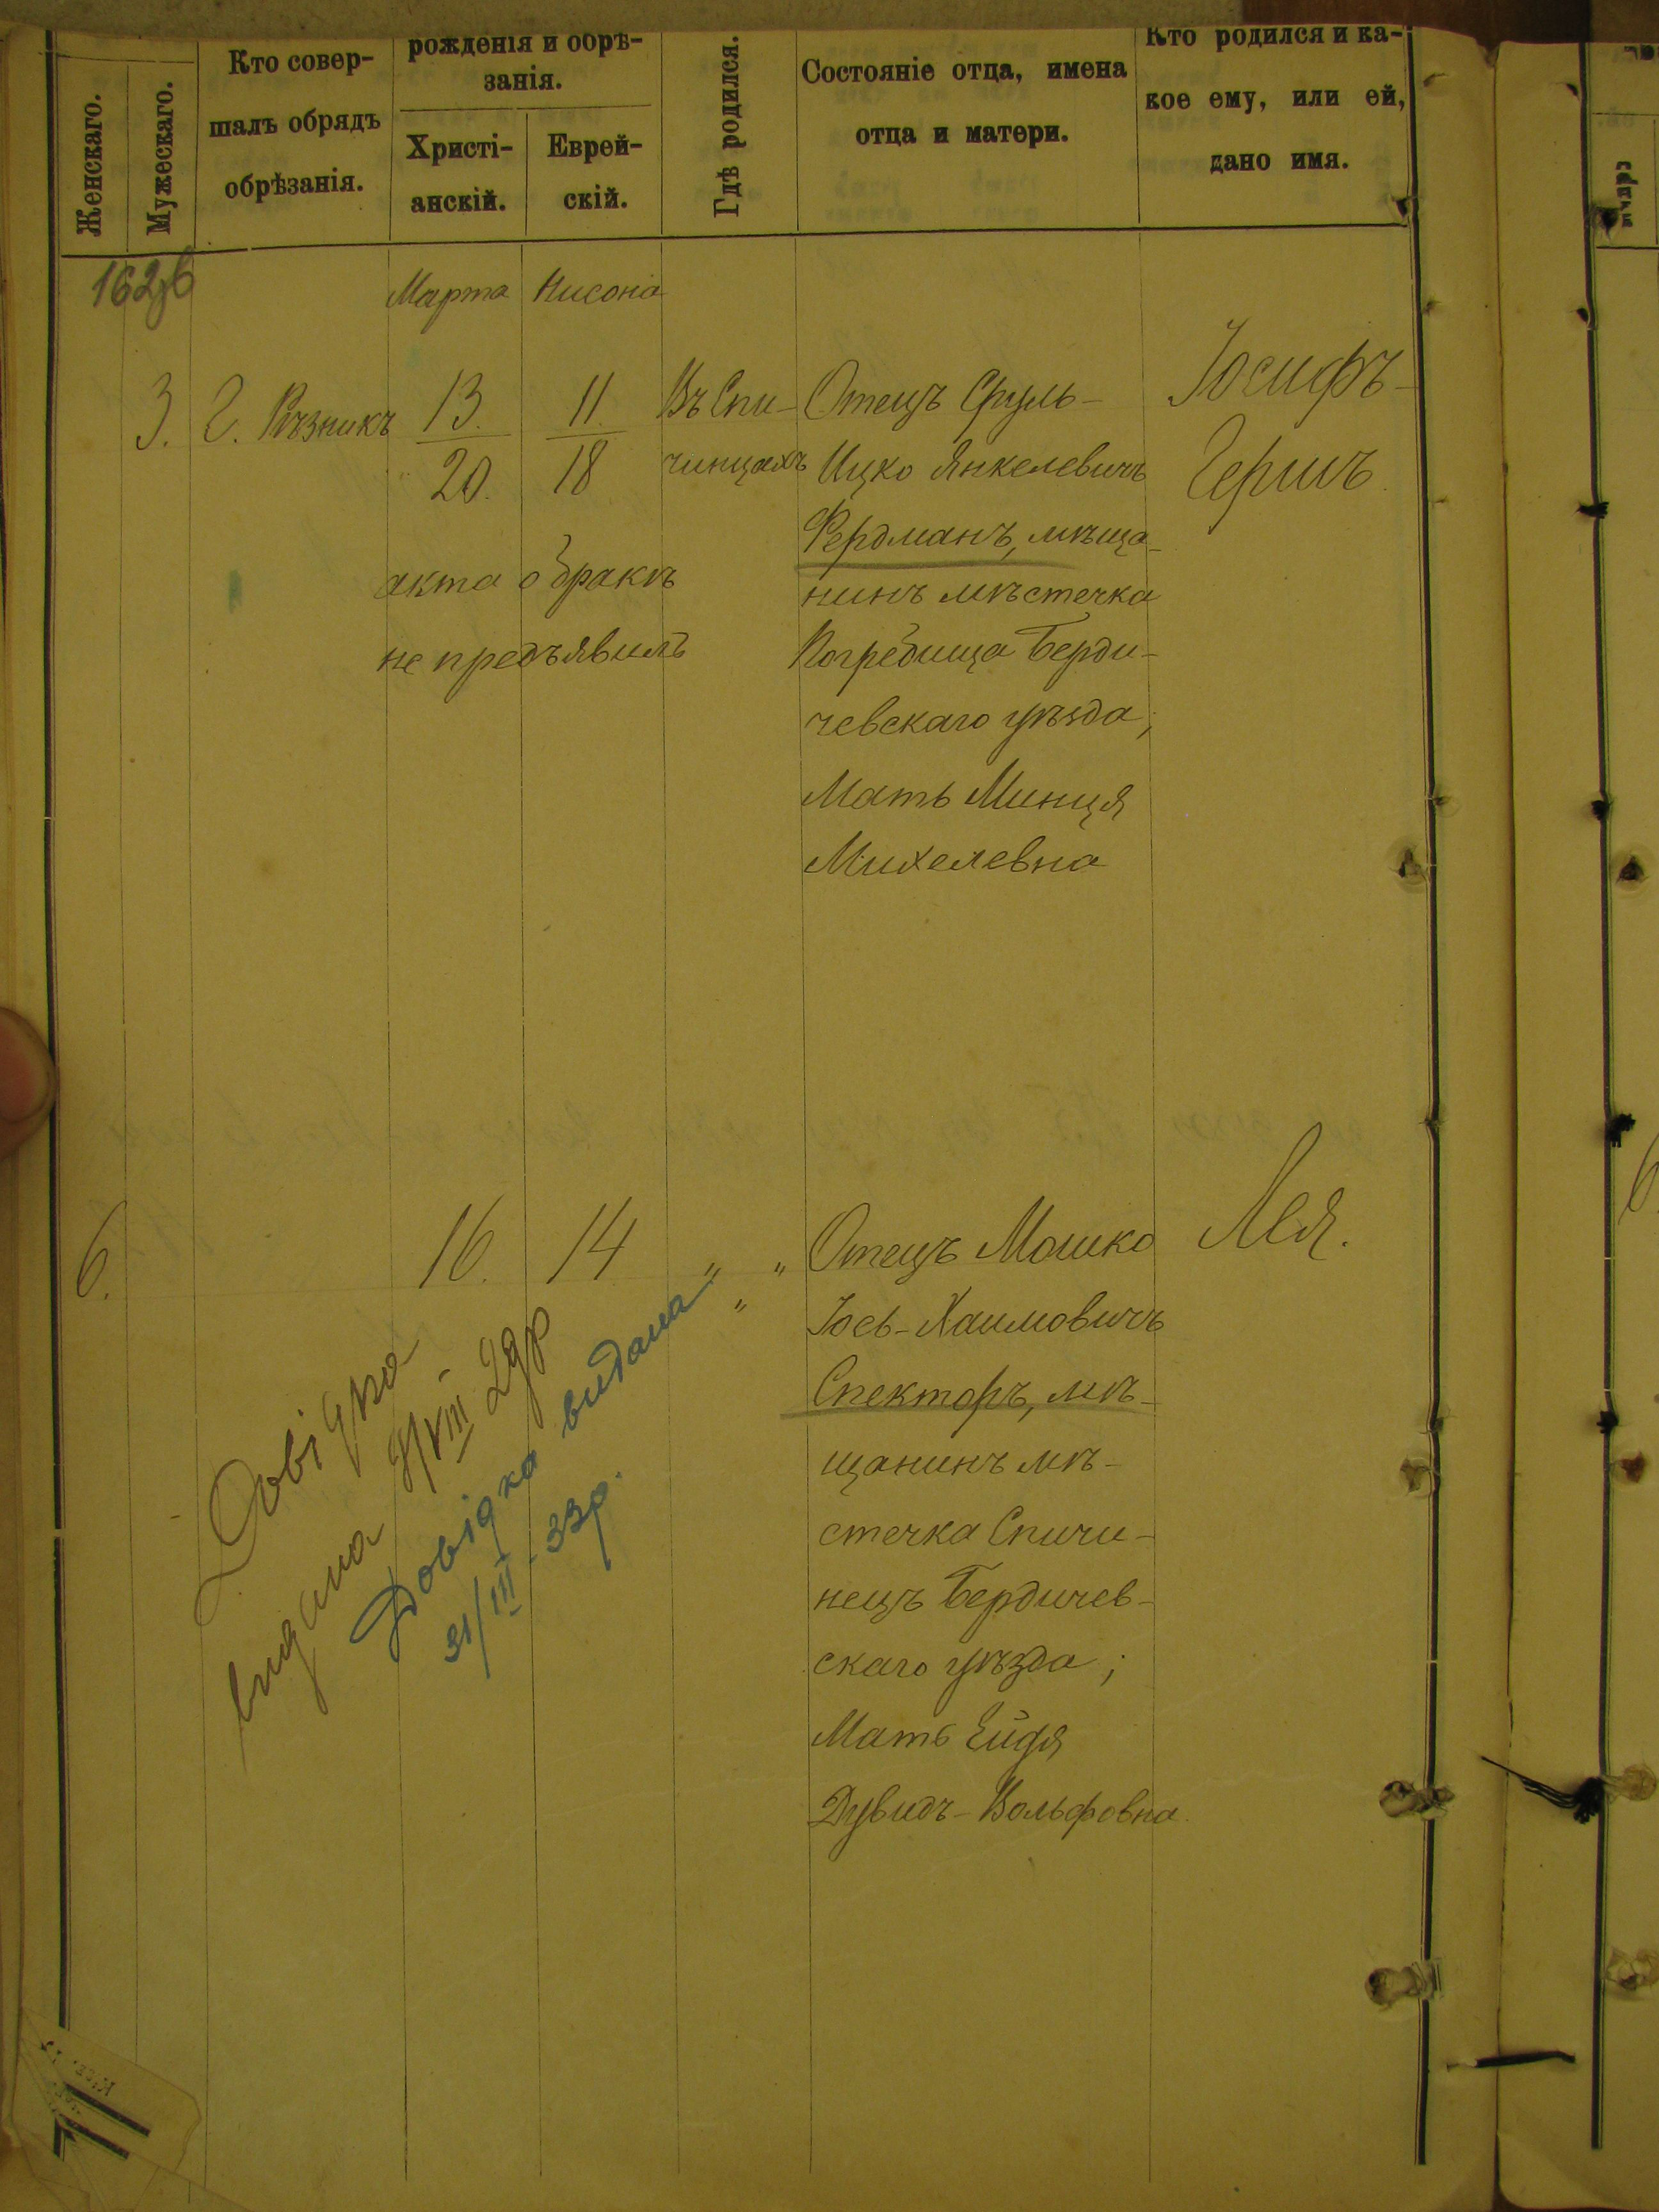 Женскаго.
Мужескаго.
Кто совер-
шалъ обрядъ
обрѣзанія.
рожденія и обрѣ-
занія.
Христі-
анскій.
Еврей-
скій.
Гдѣ родился.
Состояніе отца, имена
отца и матери.
Кто родился и ка-
кое ему, или ей,
дано имя.
162зв
Марта
Нисона
3.
Г. Рѣзникъ
13.
20.
11.
18
Въ Спи-
чинцахъ
Отецъ Сруль-
Ицко Янкелевичъ
Фердманъ, мѣща-
нинъ мѣстечка
Погребища Берди-
чевскаго уѣзда;
Мать Минця
Михелевна
Іосифъ-
Гершъ.
акта о бракѣ
не предъявилъ
6.
16.
14
" "
"
Отецъ Мошко
Іось-Хаимовичъ
Спекторъ, мѣ-
щанинъ мѣ-
стечка Спичи-
нецъ Бердичев-
скаго уѣзда;
Мать Ейдя
Дувидъ-Вольфовна.
Лея.
Довідка
видана /VIII 29р
Довідка видана
31/III-33р.